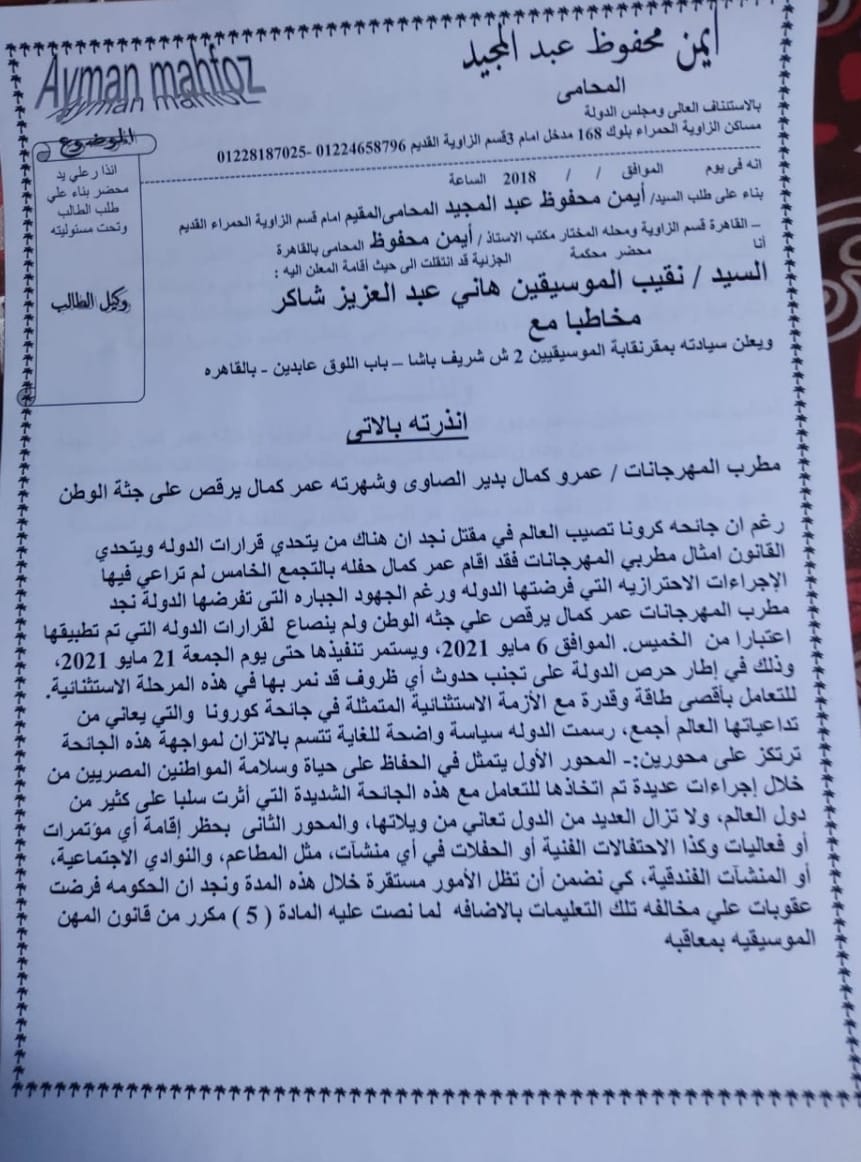 أيمن محفوظ عبد المجيد
Ayman mahfoz
المحامى
بالاستئناف العالى ومجلس الدولة
مساكن الزاوية الحمراء بلوك 168 مدخل امام 3قسم الزاوية القديم 01224658796 -01228187025
الموضوع
انذار علي يد
محضر بناء علي
طلب الطالب
وتحت مسئوليته
وكيل الطالب
انه فى يوم الموافق / / 2018 الساعة
بناء على طلب السيد/ أيمن محفوظ عبد المجيد المحامى المقيم امام قسم الزاوية الحمراء القديم
– القاهرة قسم الزاوية ومحله المختار مكتب الاستاذ / أيمن محفوظ المحامى بالقاهرة
أنا محضر محكمة الجزئية قد انتقلت الى حيث أقامة المعلن اليه :
السيد / نقيب الموسيقين هاني عبد العزيز شاكر
مخاطبا مع
ويعلن سيادته بمقرنقابة الموسيقيين 2 ش شريف باشا – باب اللوق عابدين - بالقاهره
انذرته بالاتى
مطرب المهرجانات / عمرو كمال بدير الصاوى وشهرته عمر كمال يرقص على جثة الوطن
رغم ان جائحه كرونا تصيب العالم في مقتل نجد ان هناك من يتحدي قرارات الدوله ويتحدي
القانون امثال مطربي المهرجانات فقد اقام عمر كمال حفله بالتجمع الخامس لم تراعي فيها
الإجراءات الاحترازيه التي فرضتها الدوله ورغم الجهود الجباره التى تفرضها الدولة نجد
مطرب المهرجانات عمر كمال يرقص علي جثه الوطن ولم ينصاع لقرارات الدوله التي تم تطبيقها
اعتبارا من الخميس. الموافق 6 مايو 2021، ويستمر تنفيذها حتى يوم الجمعة 21 مايو 2021،
وذلك في إطار حرص الدولة على تجنب حدوث أي ظروف قد نمر بها في هذه المرحلة الاستثنائية.
للتعامل بأقصى طاقة وقدرة مع الأزمة الاستثنائية المتمثلة في جائحة كورونا والتي يعاني من
تداعياتها العالم أجمع، رسمت الدوله سياسة واضحة للغاية تتسم بالاتزان لمواجهة هذه الجائحة
ترتكز على محورين:- المحور الأول يتمثل في الحفاظ على حياة وسلامة المواطنين المصريين من
خلال إجراءات عديدة تم اتخاذها للتعامل مع هذه الجائحة الشديدة التي أثرت سلبا على كثير من
دول العالم، ولا تزال العديد من الدول تعاني من ويلاتها، والمحور الثانى بحظر إقامة أي مؤتمرات
أو فعاليات وكذا الاحتفالات الفنية أو الحفلات في أي منشآت، مثل المطاعم، والنوادي الاجتماعية،
أو المنشآت الفندقية، كي نضمن أن تظل الأمور مستقرة خلال هذه المدة ونجد ان الحكومه فرضت
عقوبات علي مخالفه تلك التعليمات بالاضافه لما نصت عليه المادة ( 5 ) مكرر من قانون المهن
الموسيقيه بمعاقبه